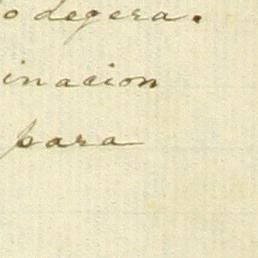 o degera.
inacion
para